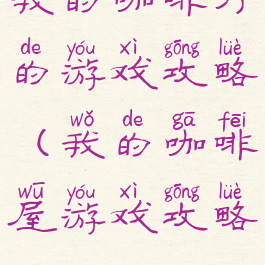 我的咖啡
de yóu xì gōng lüè
的游戏攻略
wǒ de gā fēi
(我的咖啡
wū yóu xì gōng lüè
屋游戏攻略